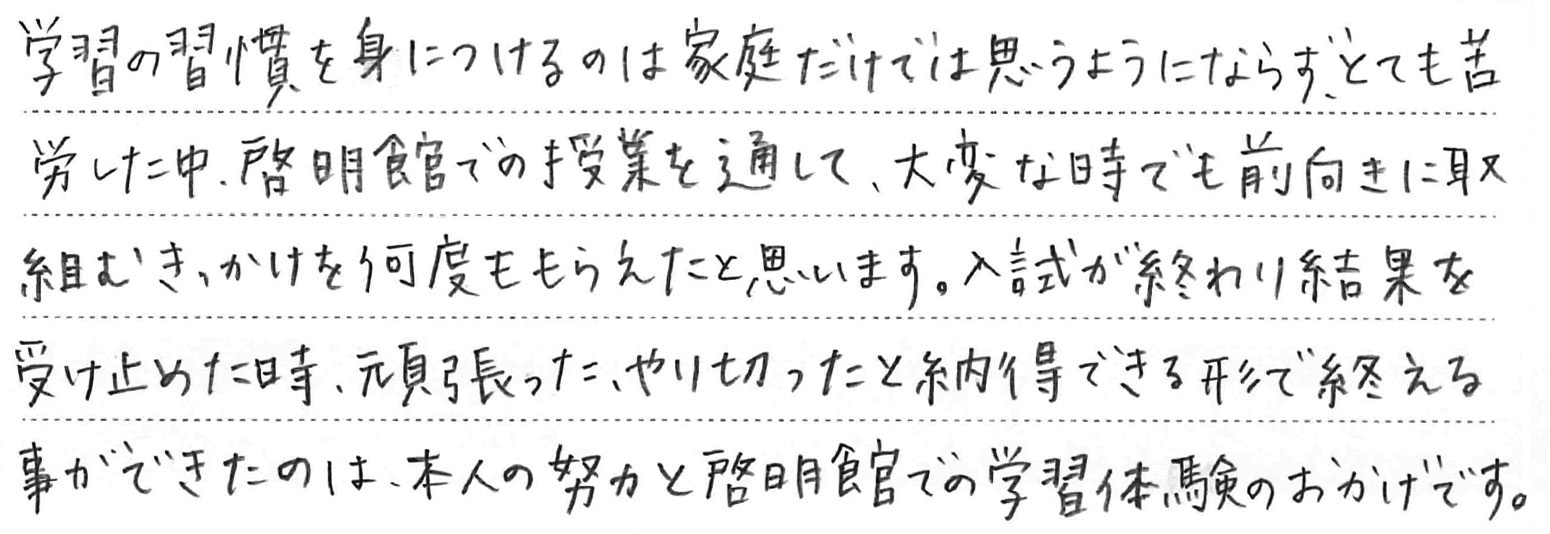 学習の習慣を身につけるのは家庭だけでは思うようにならず、とても苦
労した中、啓明館での授業を通して、大変な時でも前向きに取
組むきっかけを何度ももらえたと思います。入試が終わり結果を
受け止めた時、頑張った、やり切ったと納得できる形で終える
事ができたのは、本人の努力と啓明館での学習体験のおかげです。